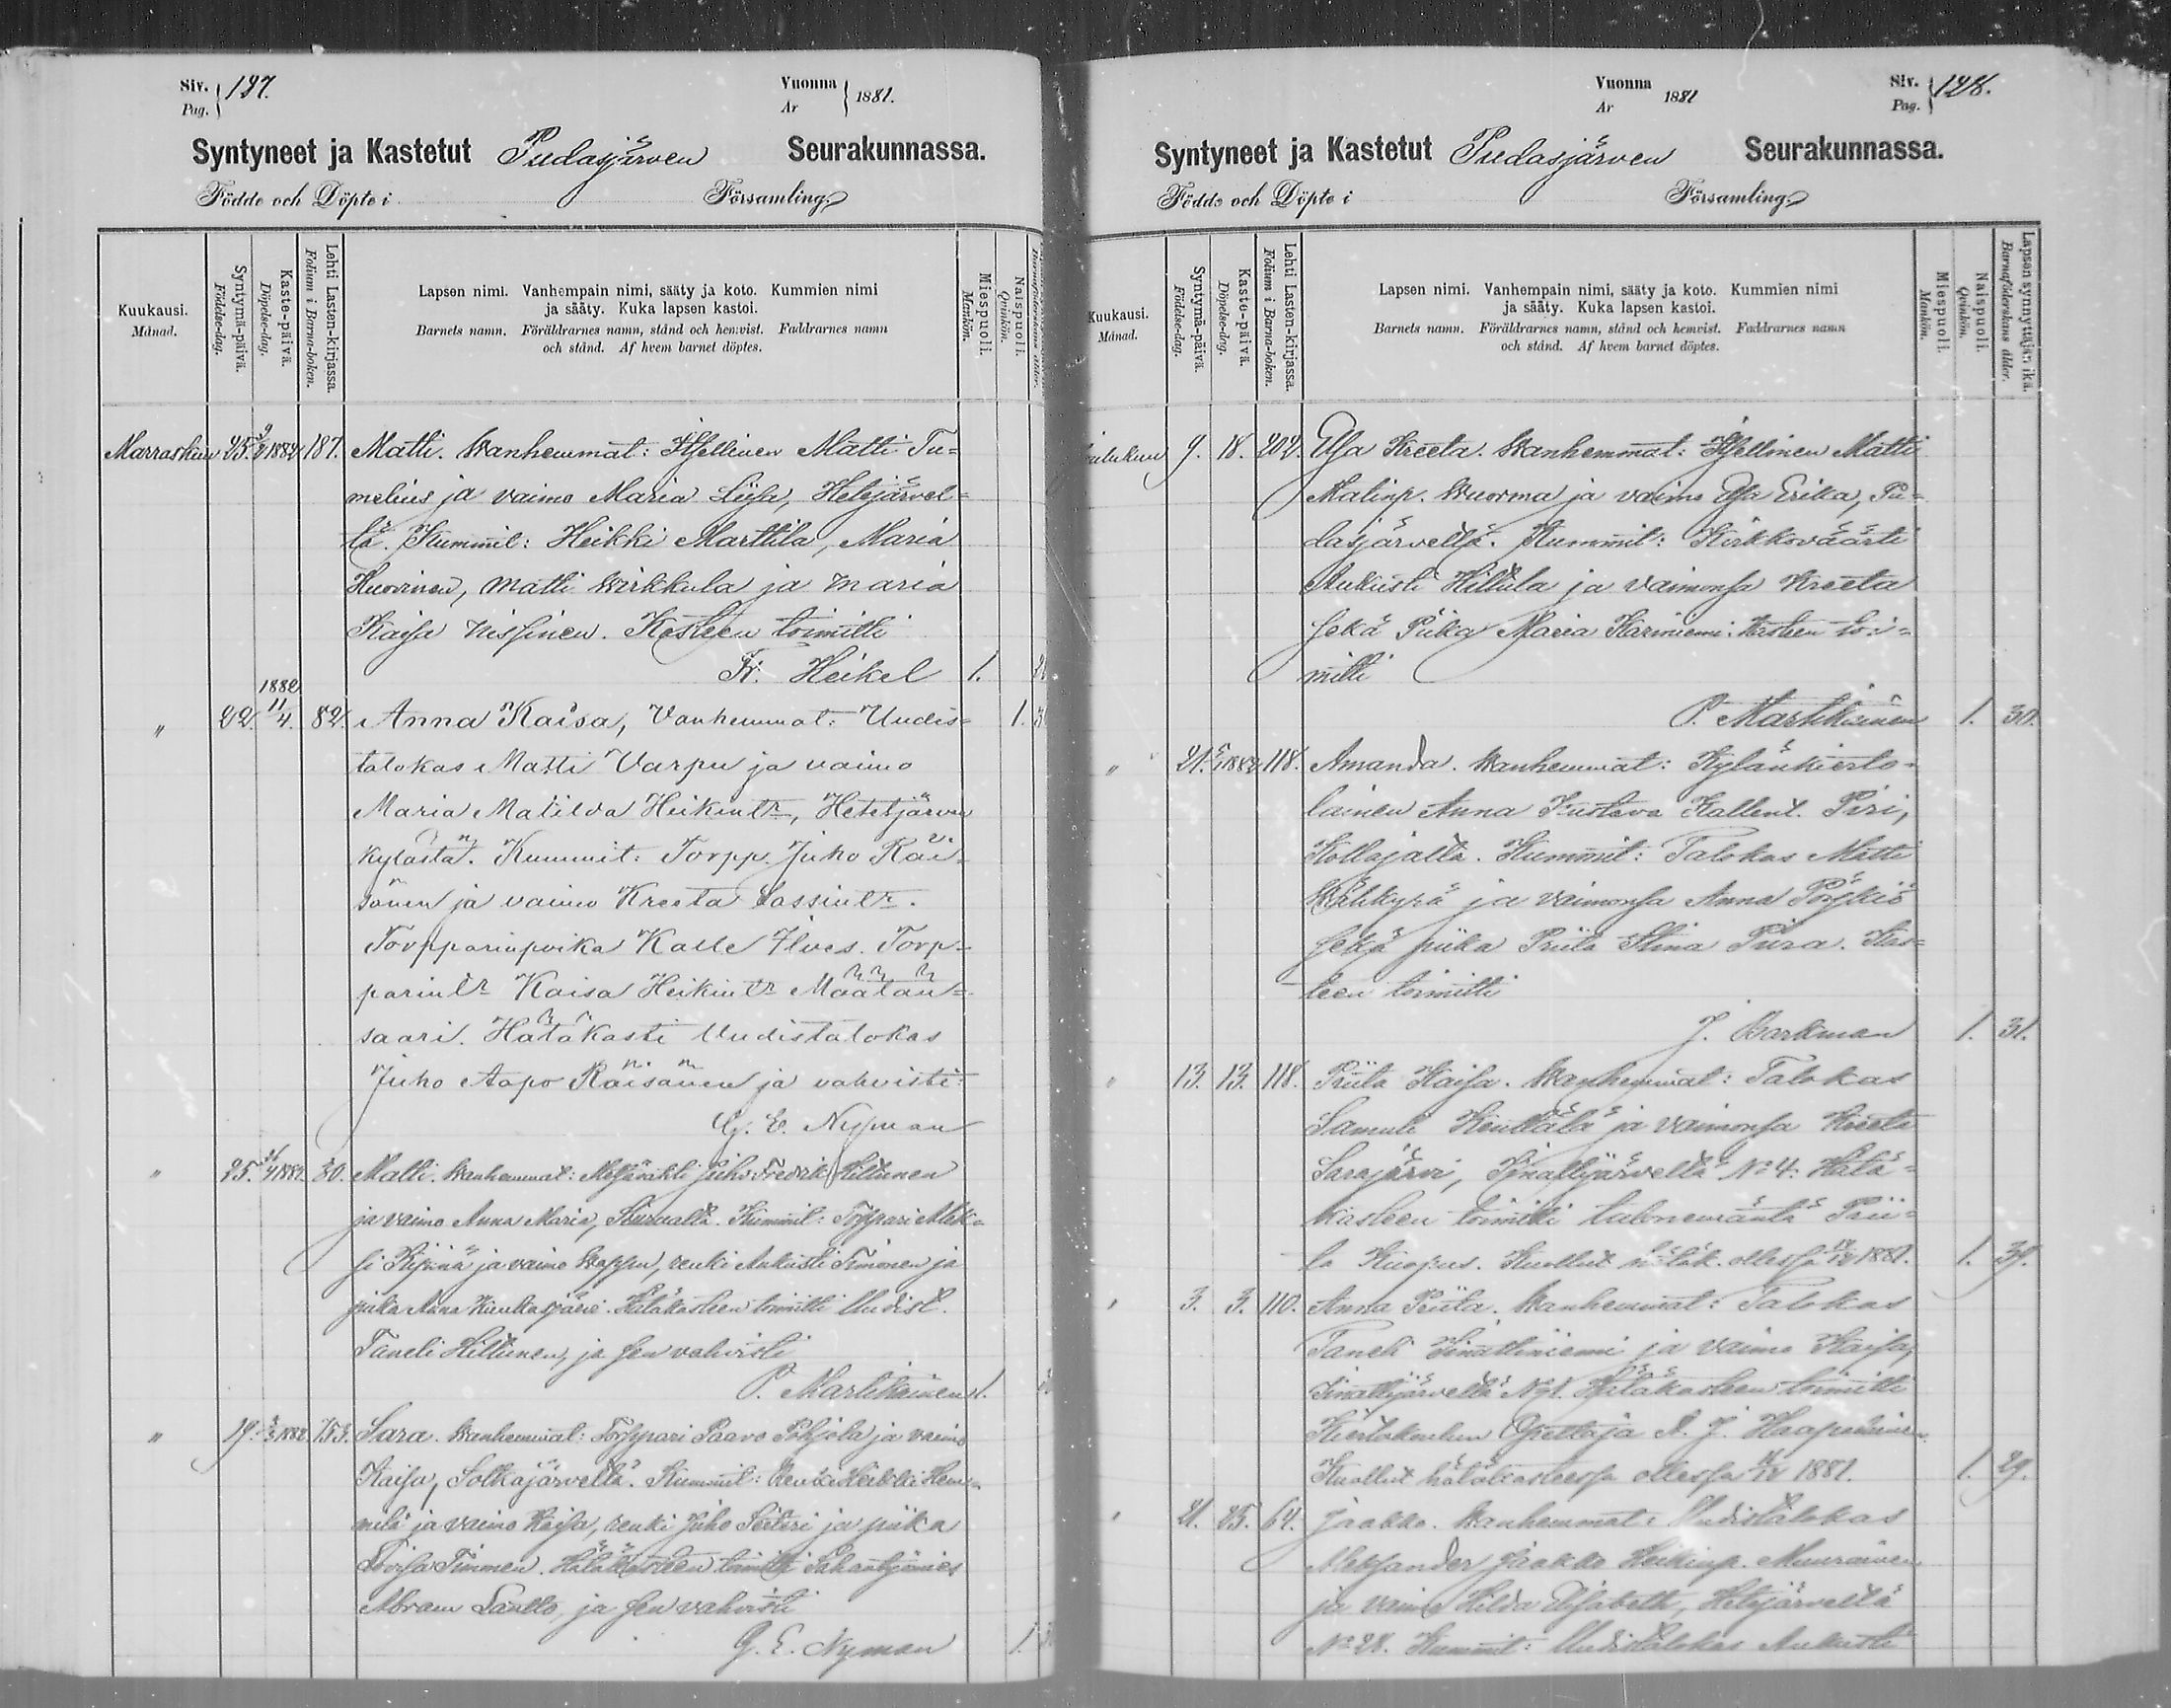 Siv. Pag. 127.
Vuonna År 1881.
Syntyneet ja Kastetut Pudasjärven Seurakunnassa.
Födde och Döpte i Församling.
Kuukausi. Månad.
Syntymä-päivä. Födelse-dag.
Kaste-päivä. Döpelse-dag.
Lehti Lasten-kirjassa. Folium i Barna-boken.
Lapsen nimi. Vanhempain nimi, sääty ja koto. Kummien nimi
ja sääty. Kuka lapsen kastoi.
Barnets namn. Föräldrarnes namn, stånd och hemvist. Faddrarnes namn
och stånd. Af hvem barnet döptes.
Miespuoli. Mankön.
Naispuoli. Qvinkön.
Marraskuu 25. 1882 187. Matti. Wanhemmat: Itsellinen Matti Tu-
melius ja vaimo Maria Liisa, Hetejärvel-
tä. Kummit: Heikki Marttila, Maria
Huovinen, Matti Wirkkula ja Maria
Kaisa Nissinen. Kasteen toimitti
Fr. Heikel 1.
" 22. 1882 11/4. 82. Anna Kaisa, Vanhemmat: Uudis- 1.
talokas Matti Varpu ja vaimo
Maria Matilda Heikintr, Hetejärven
kylästä. Kummit: Torpp. Juho Räi-
sänen ja vaimo Kreeta Lassintr.
Torpparinpoika Kalle Ilves. Torp-
parintr Kaisa Heikintr Määtän-
saari. Hätäkasti Uudistalokas
Juho Aapo Räisänen ja vahvisti:
G. E. Nyman
" 25. 1882. 30. Matti. Wanhemmat: Metsävahti Juho Fredrik Hiltunen
ja vaimo Anna Maria, Kummit: Torppari Alek-
si ja vaimo Wappu, renki Aukusti Timonen ja
piika Anna Hätäkasteen toimitti Uudist.
Taneli Hiltunen, ja sen vahvisti
P. Martikainen 1.
" 19. 1882. 153. Sara. Wanhemmat: Torppari Paavo Pohjola ja vaimo
Kaisa, Sotkajärveltä. Kummit: Renki Heikki Hem-
milä ja vaimo Kaisa, renki Juho ja piika
Loviisa Timonen. Hätäkasteen toimitti
Abram ja sen vahvisti
G. E. Nyman 1.
Siv. Pag. 128.
Vuonna År 1881
Syntyneet ja Kastetut Pudasjärven Seurakunnassa.
Födde och Döpte i Församling.
Kuukausi. Månad.
Syntymä-päivä. Födelse-dag.
Kaste-päivä. Döpelse-dag.
Lehti Lasten-kirjassa. Folium i Barna-boken.
Lapsen nimi. Vanhempain nimi, sääty ja koto. Kummien nimi
ja sääty. Kuka lapsen kastoi.
Barnets namn. Föräldrarnes namn, stånd och hemvist. Faddrarnes namn
och stånd. Af hvem barnet döptes.
Miespuoli. Mankön.
Naispuoli. Qvinkön.
Lapsen synnyttäjän ikä. Barnaföderskans ålder.
9. 18. 202. Elsa Kreeta. Wanhemmat: Itsellinen Matti
Matinp. Wuorma ja vaimo Elsa Erika, Pu-
dasjärveltä. Kummit: Kirkkoväärti
Aukusti Hiltula ja vaimonsa Kreeta
sekä Piika Maria Karinniemi. Kasteen toi-
mitti
P. Martikainen 1. 30.
" 21. 1882 118. Amanda. Wanhemmat: Kylänkierto-
lainen Anna Kustava Kallent. Piri,
Kollajalta. Kummit: Talokas Matti
ja vaimonsa Anna
sekä piika Priita Stina Piira. Kas-
teen toimitti
J. Barkman 1. 31.
" 13. 13. 118. Priita Kaisa. Wanhemmat: Talokas
Samuli ja vaimonsa Kreeta
Sarajärvi, No 4. Hätä-
kasteen toimitti talonemäntä Prii-
ta Kuopus. Kuollut hätäk. ollessa 1881. 1. 39.
3. 3. 110. Anna Priita. Wanhemmat: Talokas
Taneli ja vaimo Kaisa,
Hätäkasteen toimitti
Kiertokoulun Opettaja A. J. Haapalainen.
Kuollut hätäkasteessa ollessa 1881. 1. 29.
21. 25. 64. Jaakko. Wanhemmat: Uudistalokas
Aleksander Jaakko Heikinp. Muurainen
ja vaimo Hilda Elisabeth, Hetejärveltä
No 28. Kummit: Uudistalokas Aukusti